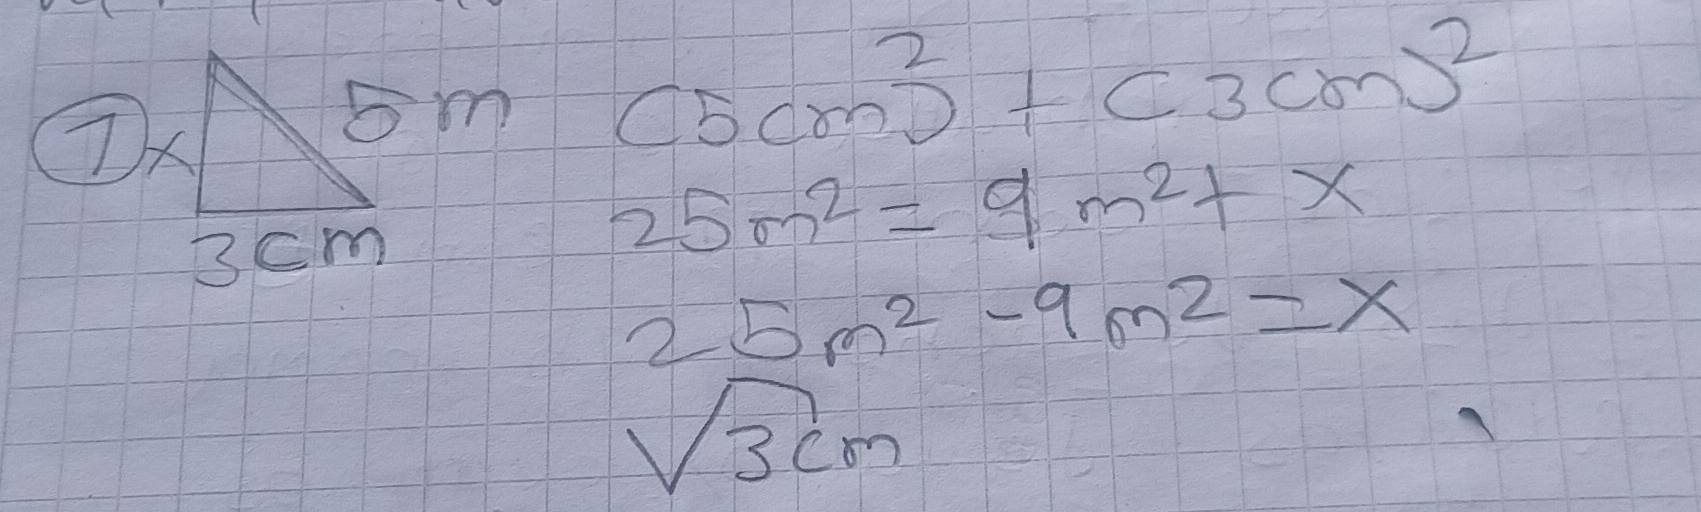 ① x 5 m
3cm
(5cm)² + (3cm)²
25m² = 9 m² + x
25m² - 9m² = x
√3cm